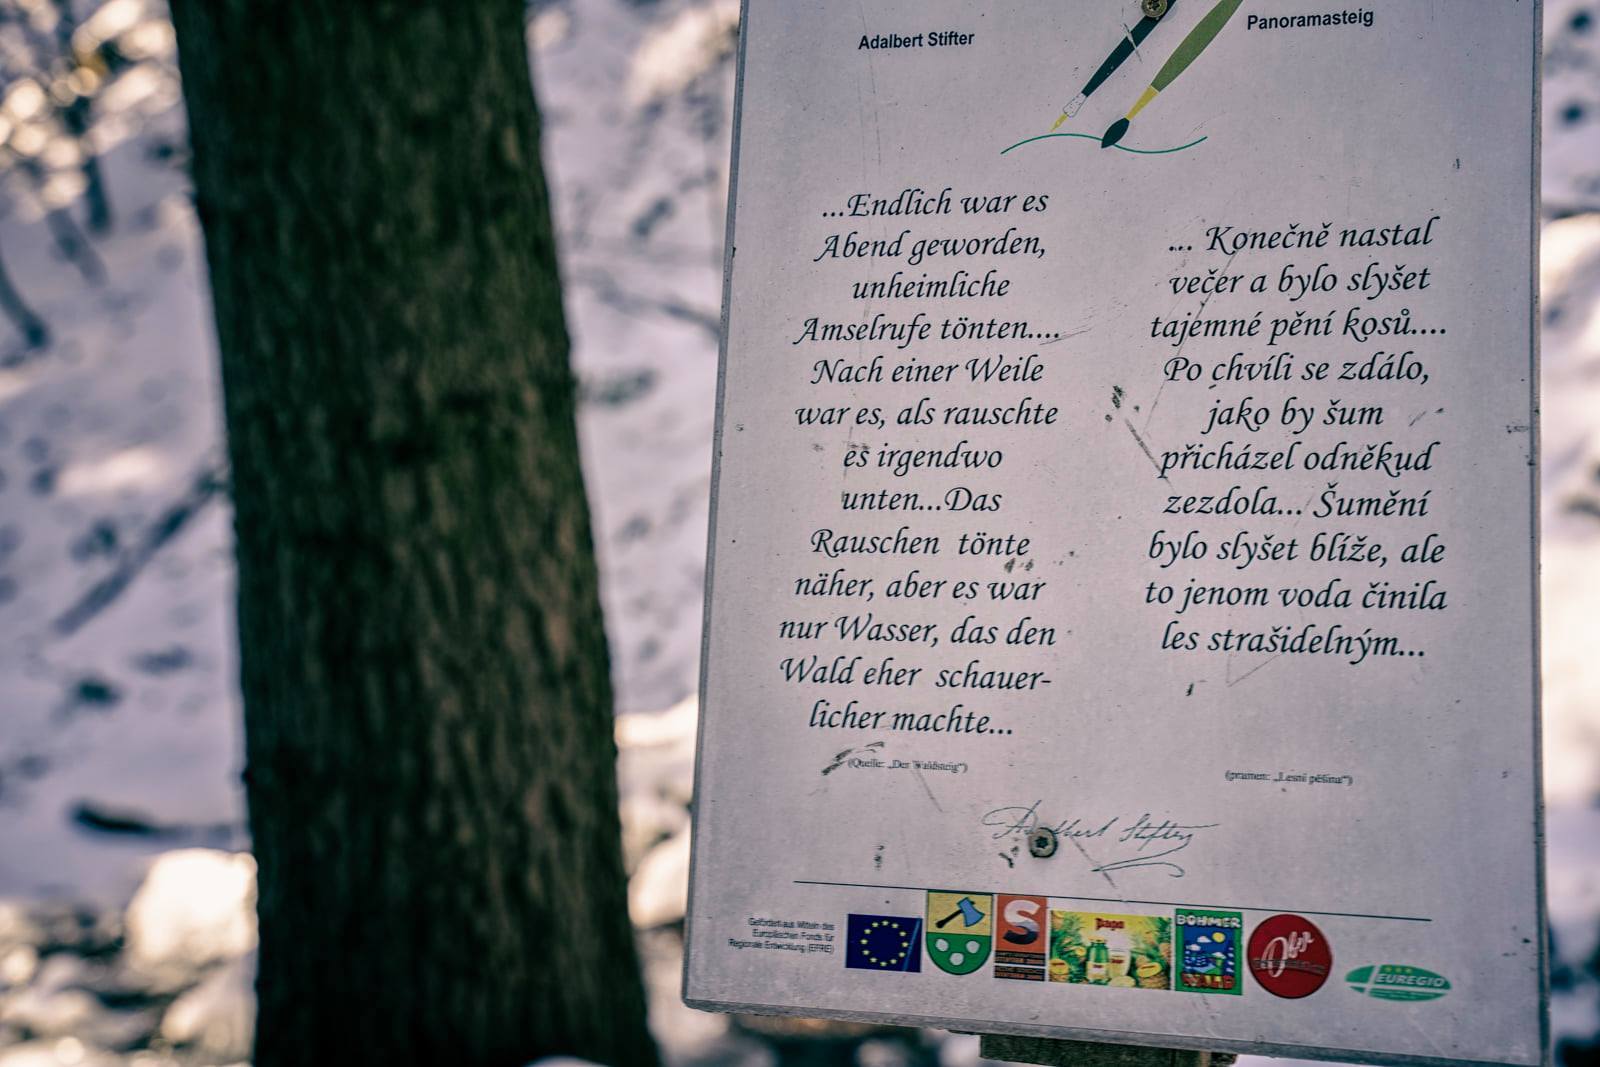 Adalbert Stifter
Panoramasteig
...Endlich war es
Abend geworden,
unheimliche
Amselrufe tönten....
Nach einer Weile
war es, als rauschte
es irgendwo
unten...Das
Rauschen tönte
näher, aber es war
nur Wasser, das den
Wald eher schauer-
licher machte...
(Quelle: „Der Waldsteig")
... Konečně nastal
večer a bylo slyšet
tajemné pění kosů....
Po chvíli se zdálo,
jako by šum
přicházel odněkud
zezdola... Šumění
bylo slyšet blíže, ale
to jenom voda činila
les strašidelným...
(pramen: „Lesní pěšina")
Adalbert Stifter
Gefördert aus Mitteln des
Europäischen Fonds für
Regionale Entwicklung (EFRE)
S
pago
BÖHMER
WALD
EUREGIO